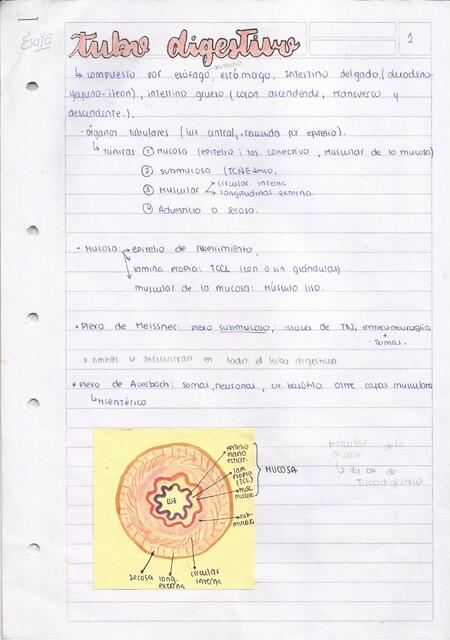 Éxito
tubo digestivo
1
↳ compuesto por esófago, estómago, intestino delgado (duodeno-
yeyuno-ileon), intestino grueso (colon ascendende, transverso y
descendente.).
- órganos tubulares (luz central, revestida por epitelio).
↳ Túnicas ① Mucosa (epitelio; tej. conectivo; muscular de la mucosa)
② submucosa (TCNE denso,
③ Muscular < circular interna
longitudinal externa.
④ Adventicio o serosa.
- Mucosa: epitelio de revestimiento,
lamina propia: TCCL (con o sin glándulas)
muscular de la mucosa: Músculo liso.
* Plexo de Meissner: plexo submucoso, isloses de TN, enteroneuroglia
+
somas.
* ambos se encuentran en todo el tubo digestivo
* plexo de Auerbach: somas, neuronas, cir. basófilo entre capas muscular
↳ Mientérico
epitelio
plano
estrat.
lam.
propia
(TCL)
musc.
mucosa
MUCOSA
sub-
mucosa
luz
serosa
long.
externa
circular
interna
Muscular de la
mucosa
↳ da
Tubo digestivo